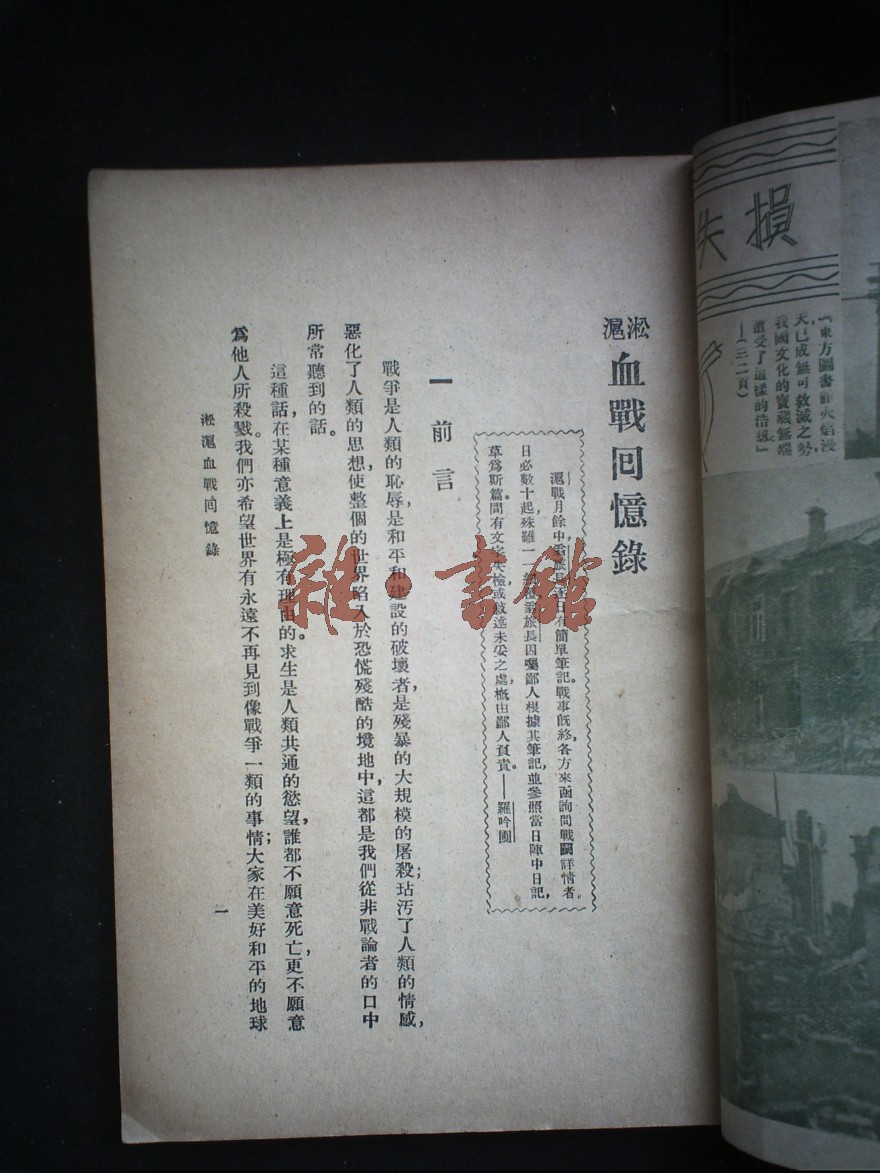 損失
「東方圖書館火焰漫
天已成無可救滅之勢
我國文化的寶藏無端
遭受了這樣的浩劫」
—(三二頁)
淞滬
血戰回憶錄
滬戰月餘中翁旅長逐日有簡單筆記。戰事旣終,各方來函詢問戰鬭詳情者。
日必數十起,殊難一一翁旅長因囑鄙人根據其筆記,並參照當日陣中日記,
草爲斯篇。間有文字失檢或敍述未妥之處,槪由鄙人負責。——羅吟圃
一 前言
戰爭是人類的恥辱,是和平和建設的破壞者,是殘暴的大規模的屠殺;玷汚了人類的情感,
惡化了人類的思想,使整個的世界陷入於恐慌殘酷的境地中,這都是我們從非戰論者的口中
所常聽到的話。
這種話,在某種意義上是極有理由的。求生是人類共通的慾望,誰都不願意死亡,更不願意
爲他人所殺戮。我們亦希望世界有永遠不再見到像戰爭一類的事情;大家在美好和平的地球
淞滬血戰回憶錄
一
雜·書館